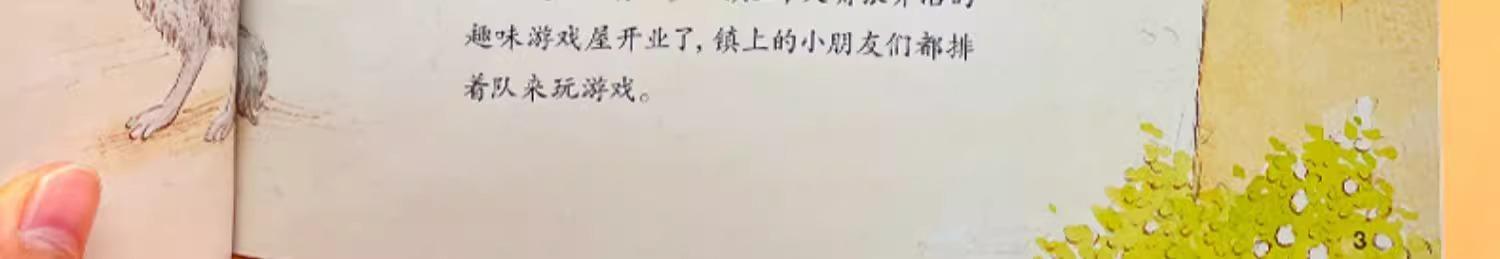 趣味游戏屋开业了，镇上的小朋友们都排
着队来玩游戏。
3